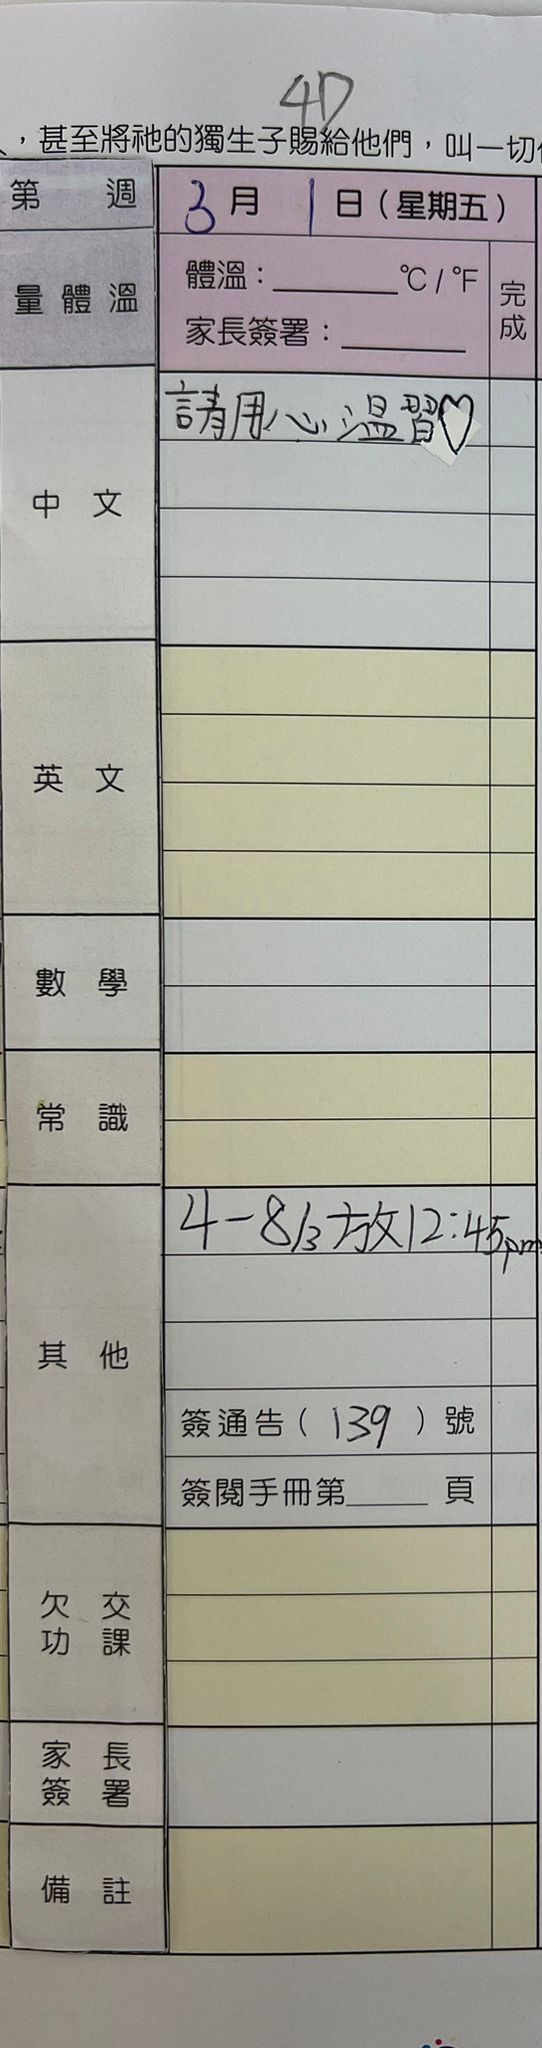 4D
，甚至將祂的獨生子賜給他們，叫一切
第 週
3月 1日（星期五）
量體溫
體溫：______℃/℉
家長簽署：______
完成
中文
請用心溫習♡
英文
數學
常識
其他
4-8/3放12:45pm
簽通告（139）號
簽閱手冊第____頁
欠交
功課
家長
簽署
備註